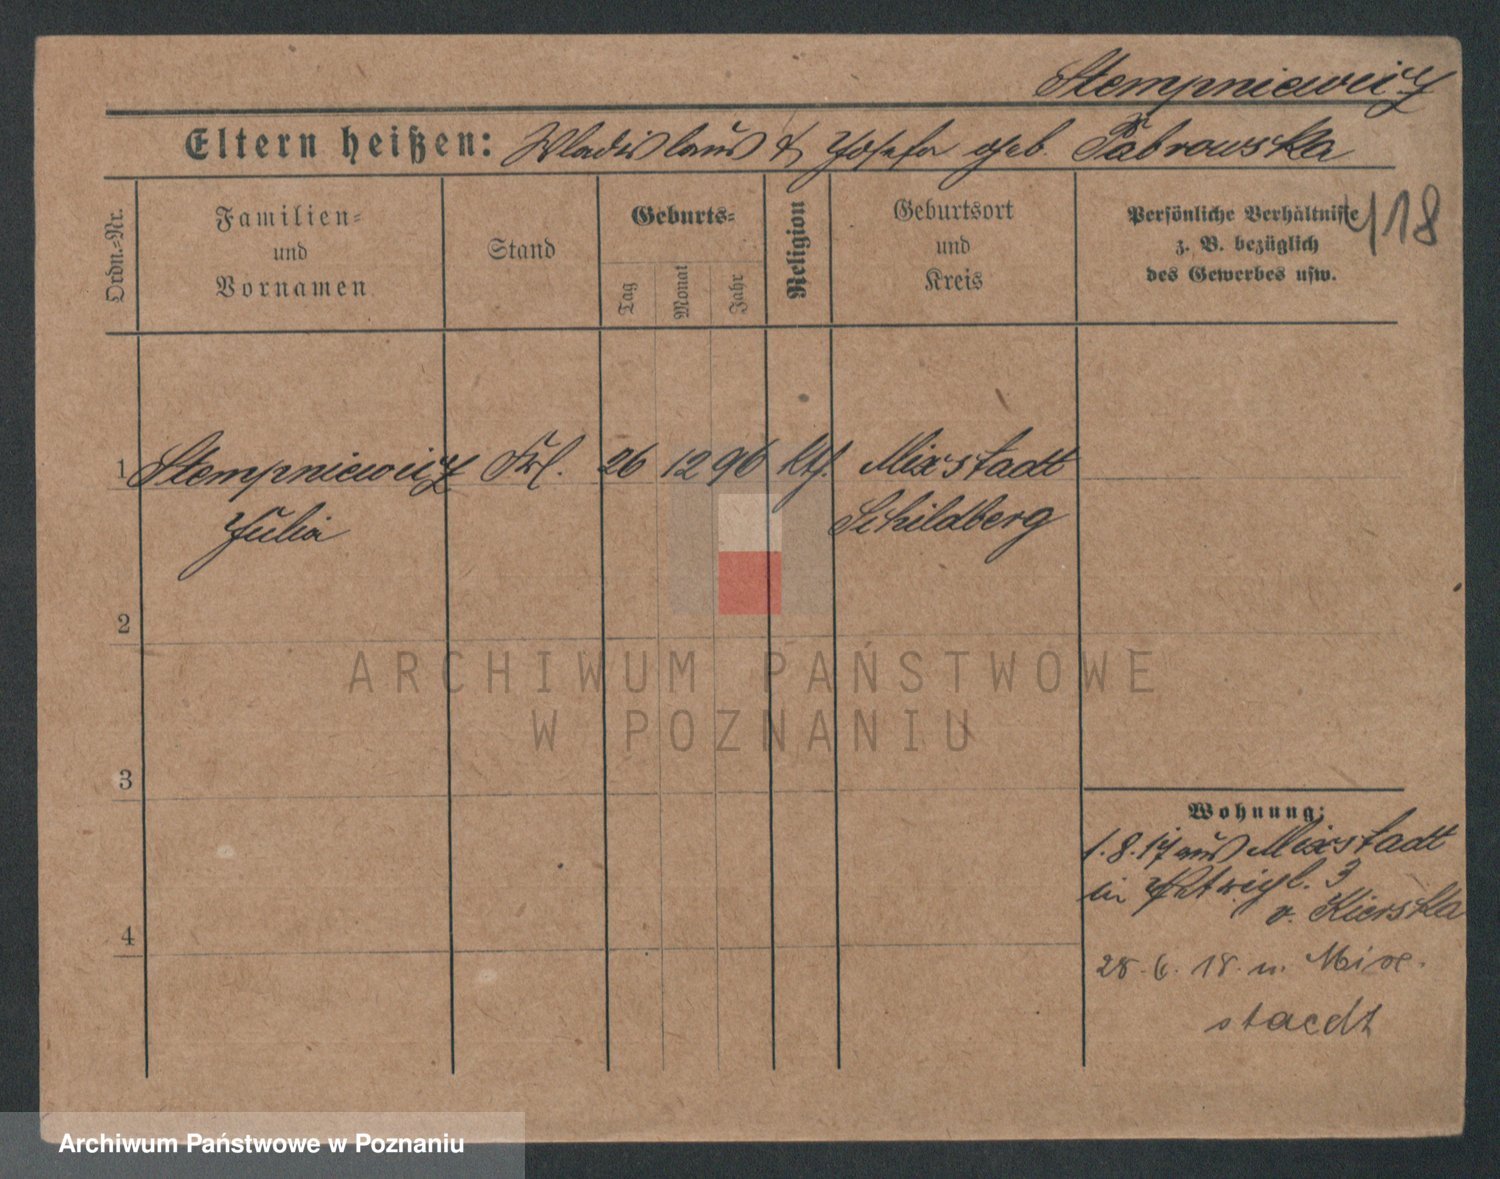 Stempniewicz
Eltern heißen: Wladislaus & Josefa geb. Pabrowska
118
Ordn.-Nr.
Familien-
und
Vornamen
Stand
Geburts-
Tag
Monat
Jahr
Religion
Geburtsort
und
Kreis
Persönliche Verhältnisse
z. B. bezüglich
des Gewerbes usw.
1 Stempniewicz Frl. 26 12 96 kth. Mixstadt
Julia Schildberg
2
3
4
Wohnung:
1.8.17 aus Mixstadt
in 3
v. Kierska
28.6.18. n. Mix-
stadt
ARCHIWUM PAŃSTWOWE
W POZNANIU
Archiwum Państwowe w Poznaniu